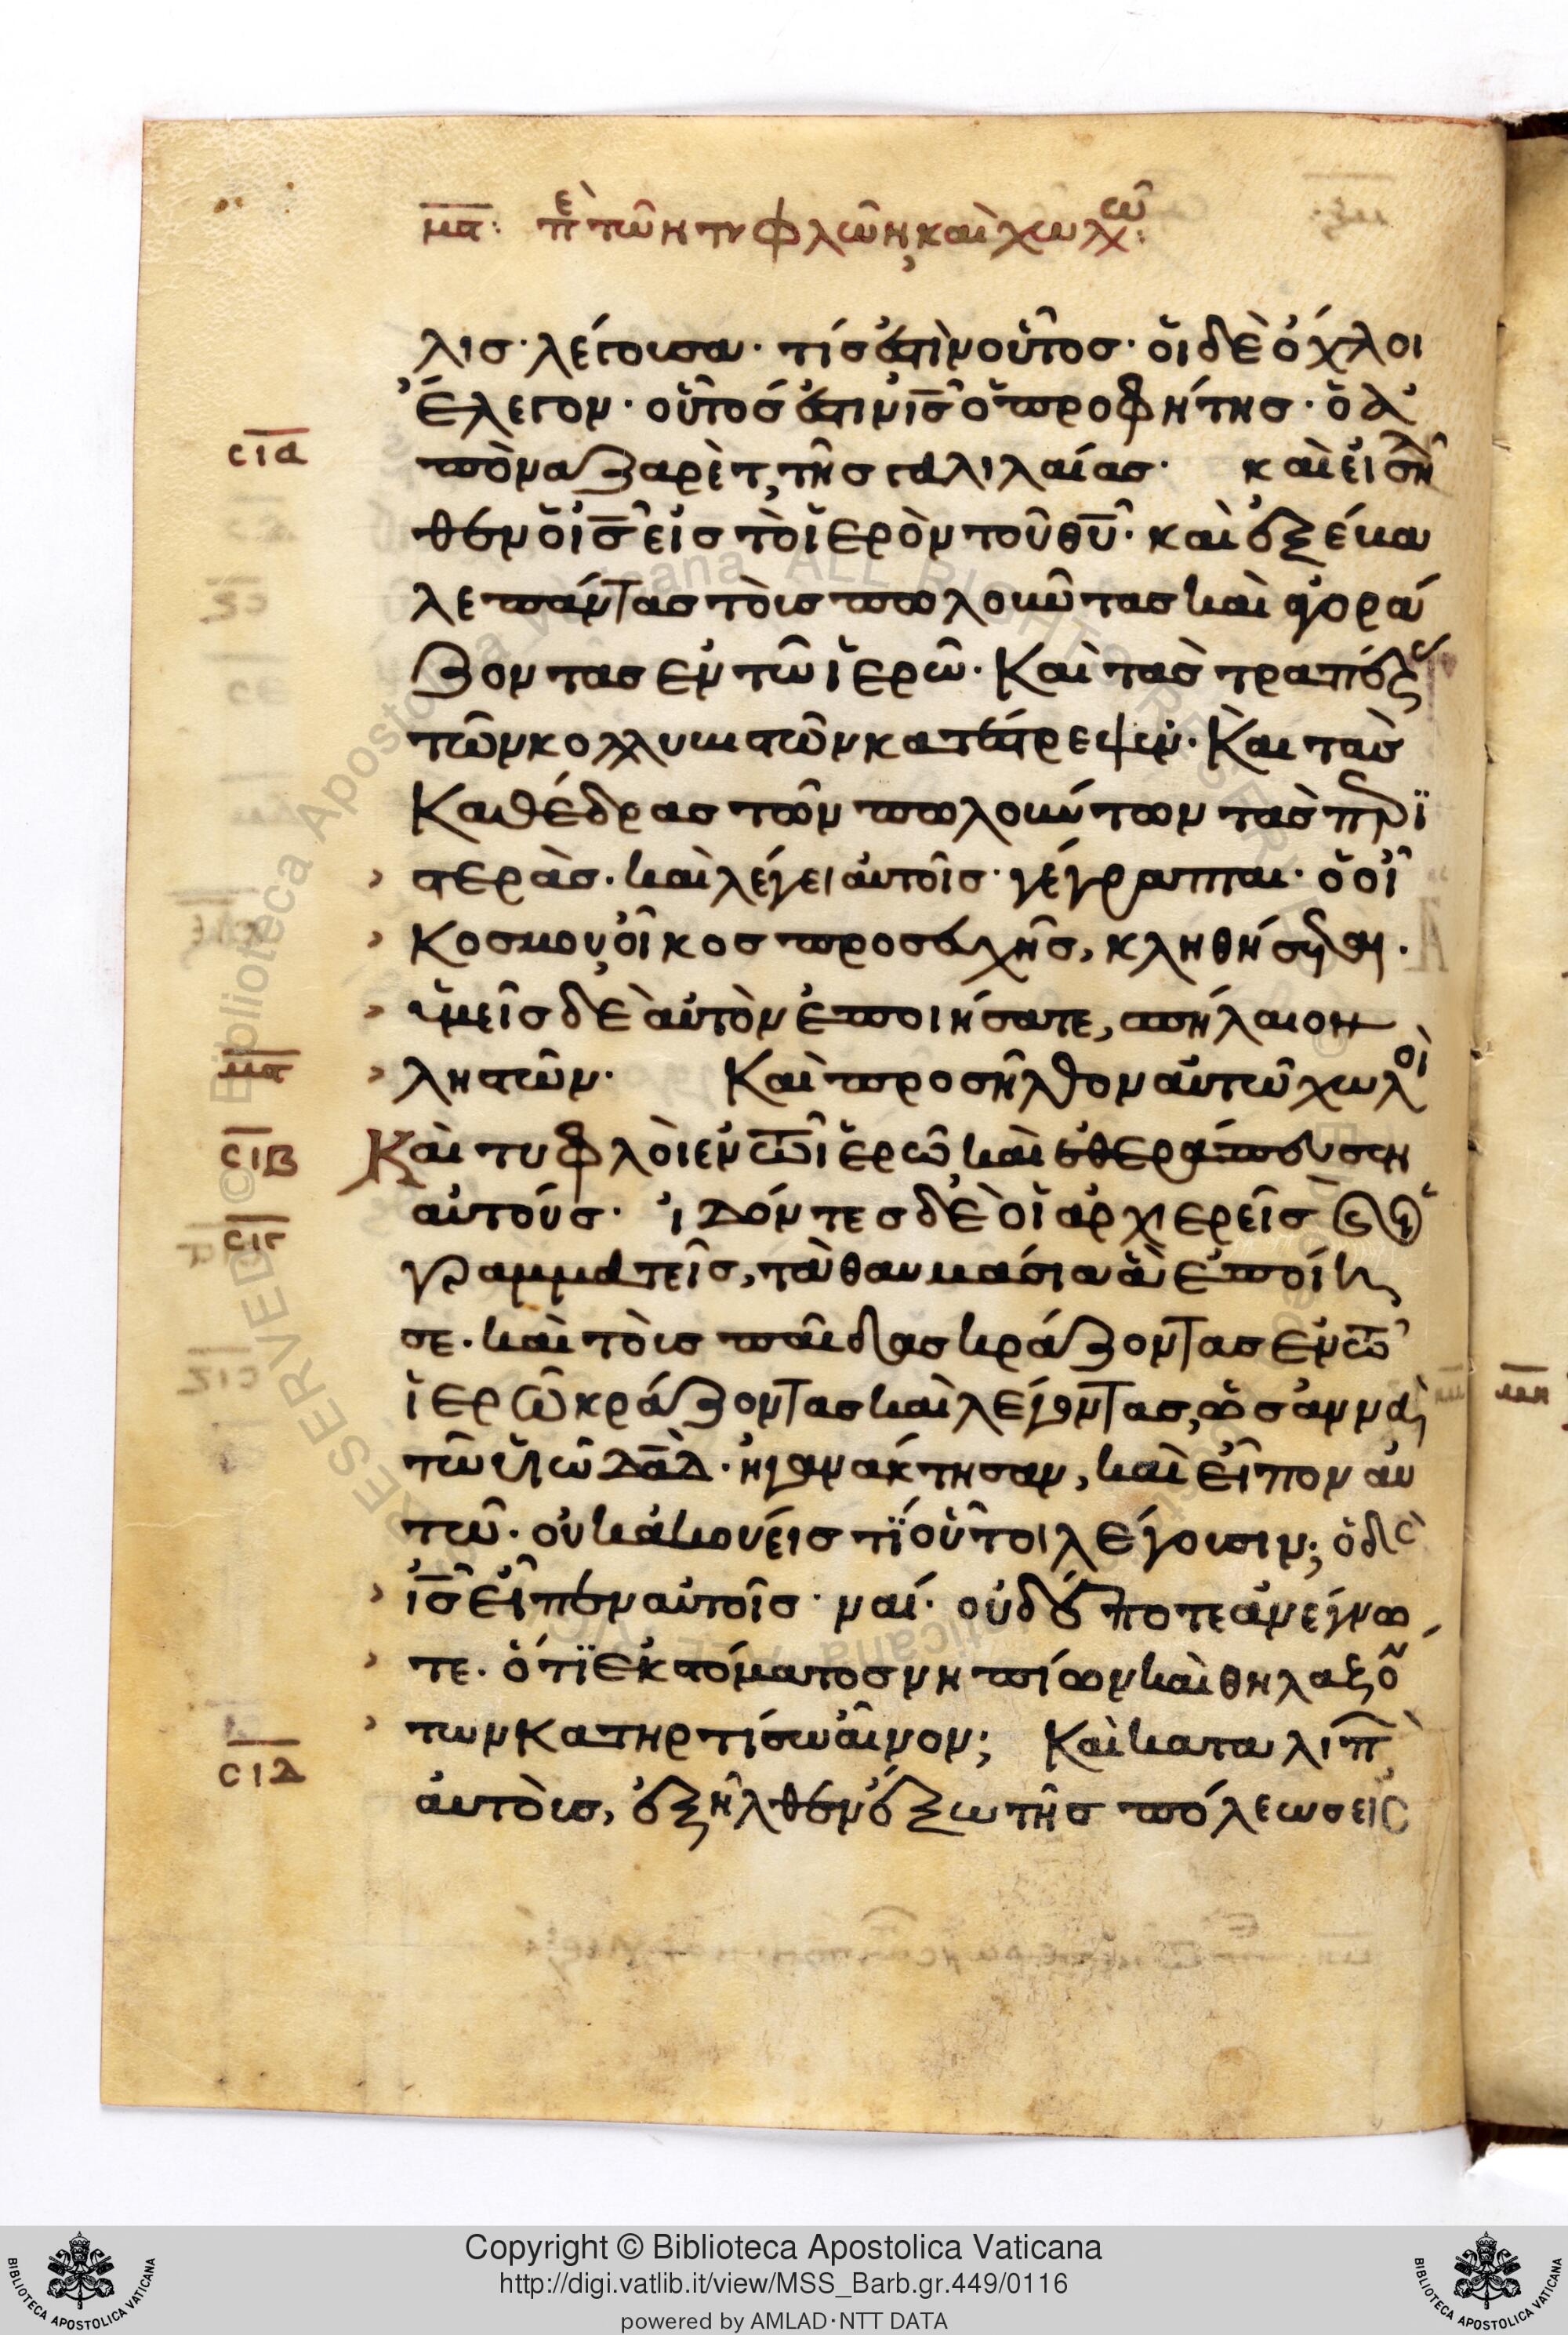 μα: πε τῶν τυφλῶν, καὶ χωλῶ:
λισ· λέγουσα· τίσ ἐστὶν οὗτοσ· ὁι δὲ ὄχλοι
ἔλεγον· οὗτόσ ἐστιν ισ ὁ προφήτησ· ὁ ἀ
σια
πὸ ναζαρὲτ, τῆσ γαλιλαίασ· καὶ εἰσῆλ
θεν ὁ ισ εἰσ τὸ ἱερὸν τοῦ θυ· καὶ ἐξέβα
λε πάντασ τὸυσ πωλοῦντασ καὶ ἀγορά
ζοντασ ἐν τῶ ἱερῶ· Καὶ τασ τραπέζασ
τῶν κολλυβιστῶν κατέστρεψεν· Και τασ
Καθέδρασ τῶν πωλούντων τασ περϊ
στεράσ· καὶ λέγει αυτοῖσ· γέγραπται· ὁ οἶ
Κοσ μου, οἶκοσ προσευχῆσ, κληθήσεται·
ὑμεῖσ δὲ αὐτὸν ἐποιήσατε, σπήλαιον
μα
ληστῶν· Καὶ προσῆλθον αὐτῶ χωλοὶ
σιβ
Καὶ τυφλὸι ἐν τῶ ἱερῶ, καὶ ἐθεράπευσεν
σιγ
αὐτούσ· ἰδόντεσ δὲ ὁι ἀρχιερεῖσ καὶ ὁι
γραμματεῖσ, τὰ θαυμάσια ἃ ἐποίη
σε· καὶ τὸυσ παῖδασ κράζοντασ ἐν τῶ
ἱερῶ κράζοντασ καὶ λέγοντασ, ὡσαννὰ
τῶ υἱῶ δαδ· ἠγανάκτησαν, καὶ εἶπον αυ
τῶ· οὐκ ἀκούεισ τϊ οὗτοι λέγουσιν; ὁ δὲ
ισ εἶπεν αὐτοῖσ· ναί· οὐδέποτε ἀνέγνω
τε· ὅτϊ ἐκ στόματοσ νηπίων καὶ θηλαζό
των Κατηρτίσω αἶνον; Καὶ καταλιπ
σιδ
ἀυτὸυσ, ἐξῆλθεν ἔξω τῆσ πόλεωσ εἰσ
Copyright © Biblioteca Apostolica Vaticana
http://digi.vatlib.it/view/MSS_Barb.gr.449/0116
powered by AMLAD·NTT DATA